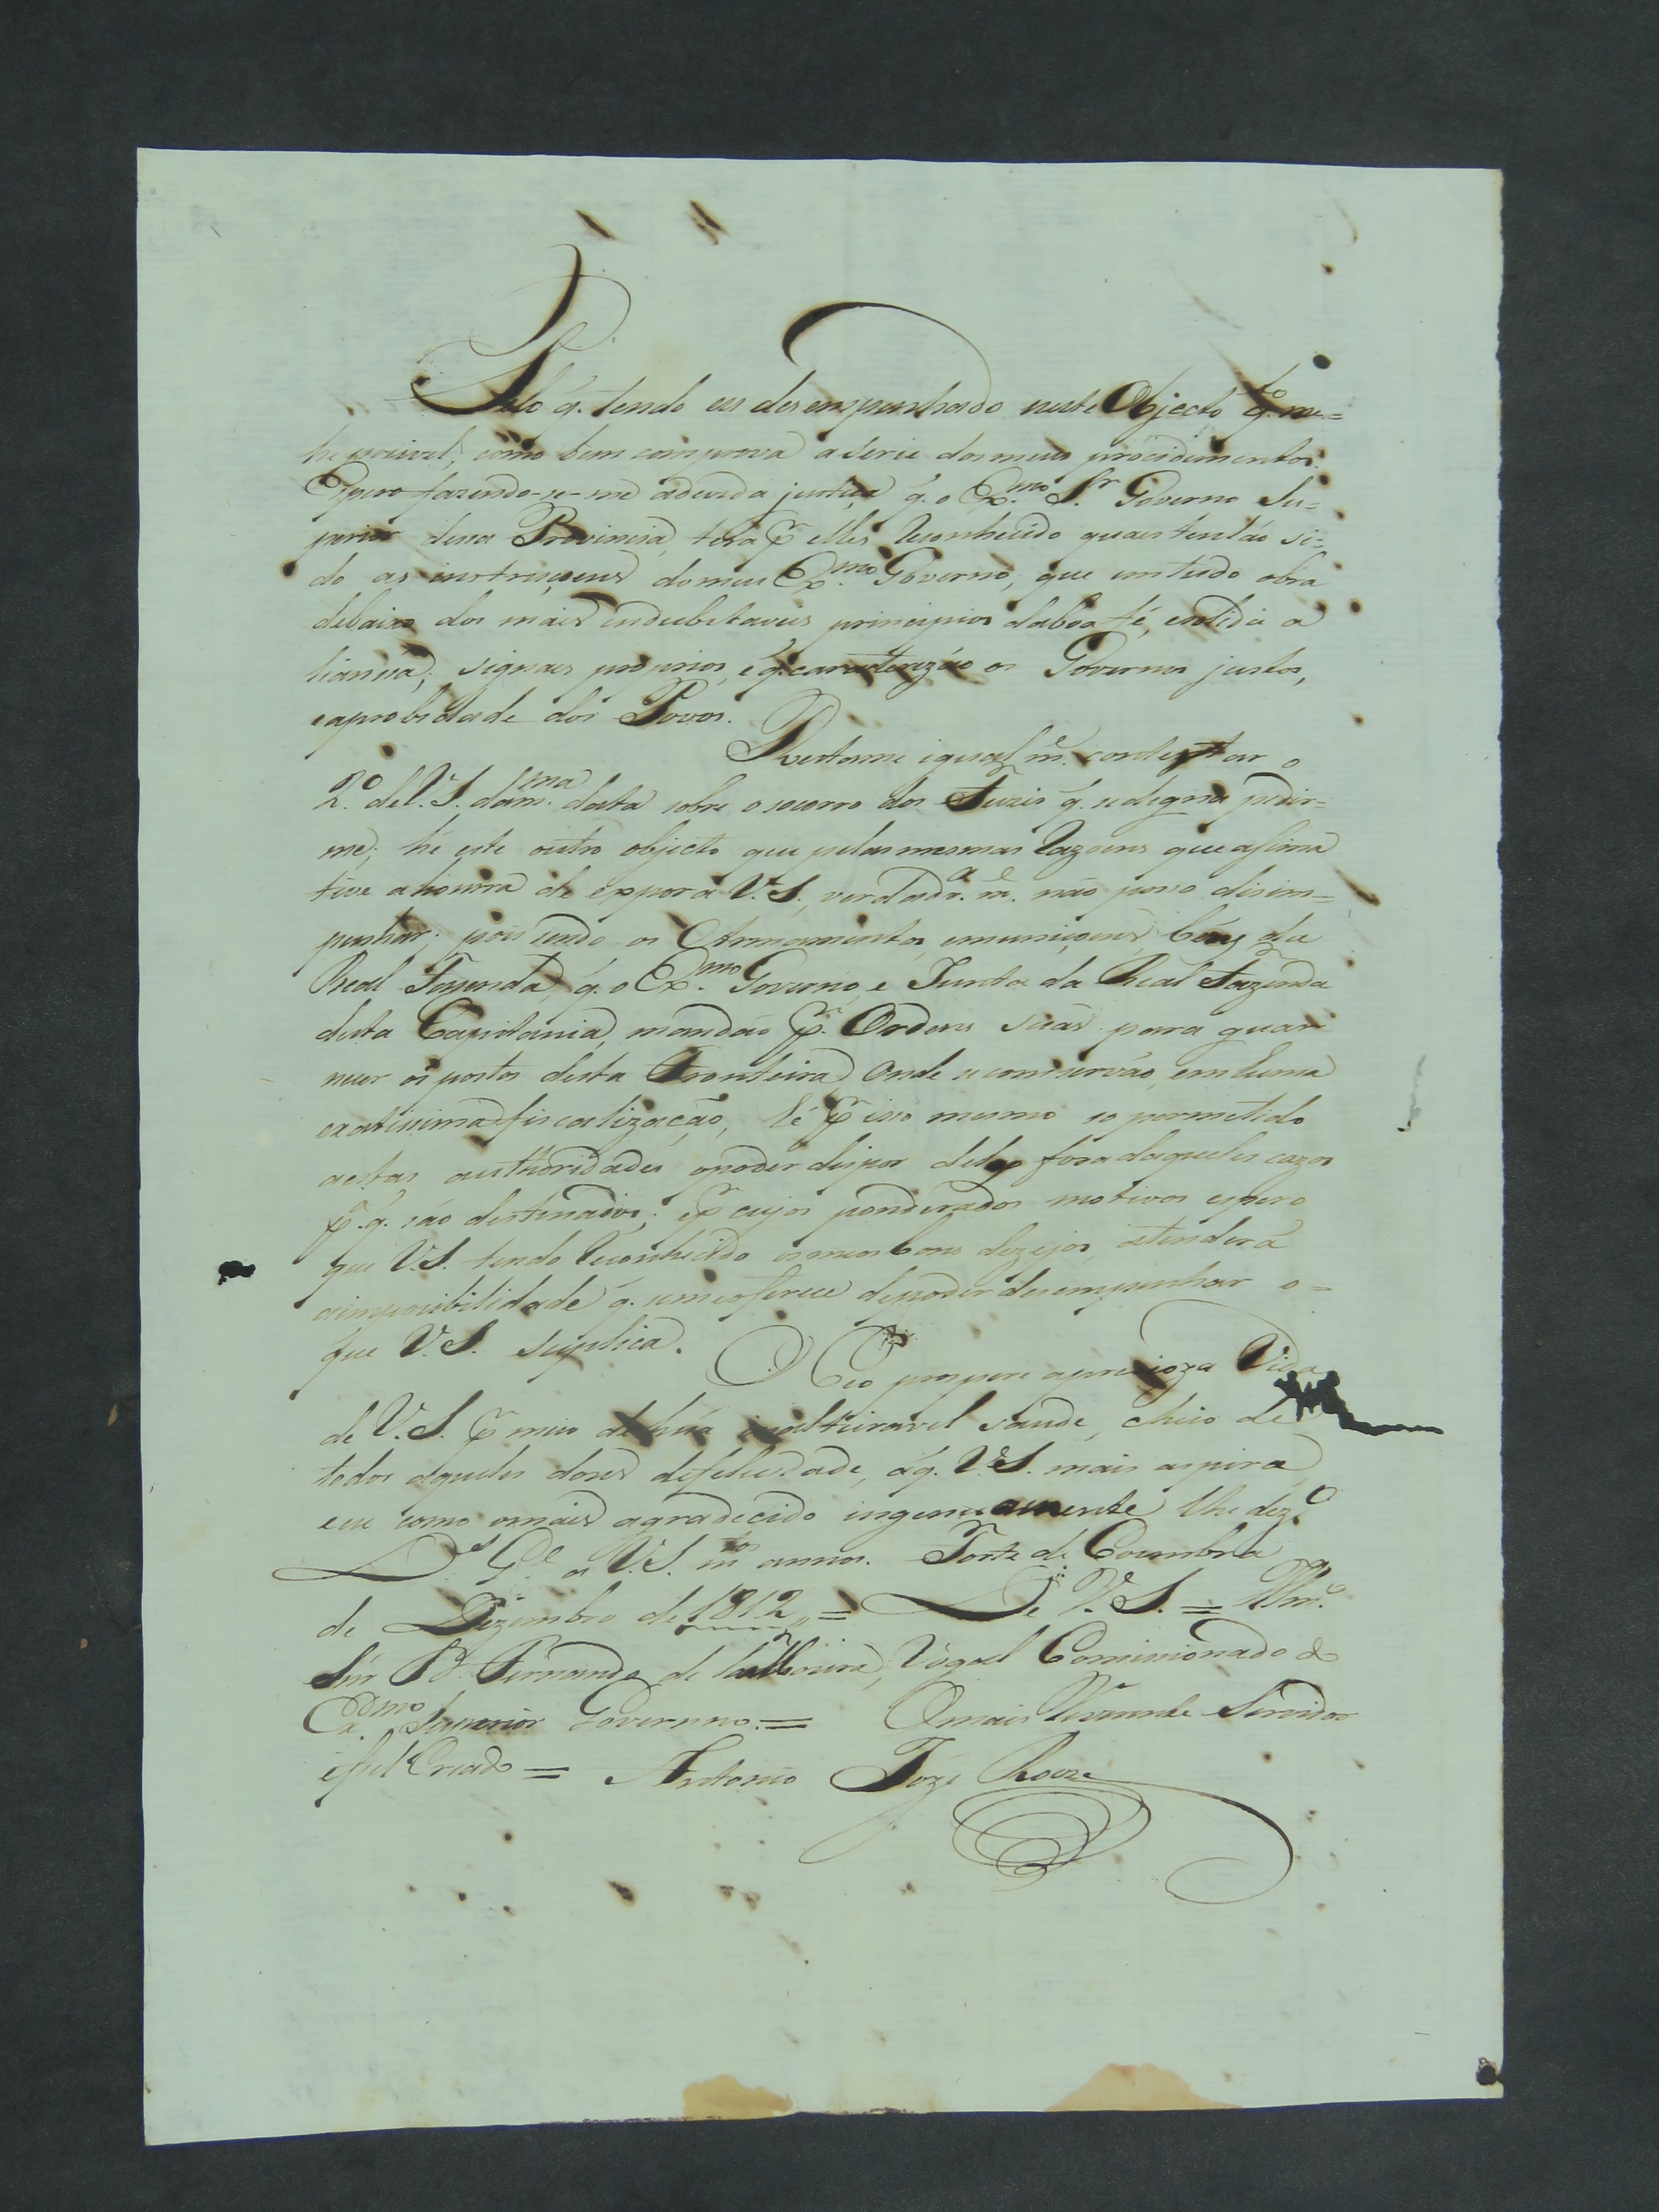 Pelo q. tendo eu desempenhado neste Objecto q.to me=
he possivel, como bem comprova a serie dos meus procidimentos.
Espero fazendo-se-me a devida justiça q. o Ex.mo S.r Governo Su=
perior dessa Provincia, terá p elles reconhecido quais tenhão si=
do as instruçoens do meu Ex.mo Governo, que em tudo obra
debaixo dos mais indubitaveis principios da boa fé, e solida a
liança; signaes proprios, e q. caraterizão os Governos justos,
e a probidade dos Povos.
Restame igualm.e contestar o
2.o de V. S. da m.ma data sobre o socorro dos Fuzis q. se degna pedir=
me; hé este outro objecto que pelas mesmas razoens que assima
tive a honra de expor a V. S., verdadr.a m.e não posso disim=
penhar; pois sendo os Armamentos, e muniçoens, bens da
Real Fazenda, q. o Ex.mo Governo, e Junta da Real Fazenda
desta Capitania, mandão p. Ordens suas para guar
necer os postos desta Fronteira, Onde se conservão, em huma
exatissima fiscalização, hé p isso mesmo so permetido
a estas authoridades o poder dispor delles fora daqueles cazos
p. q. são destinados; e p cujos ponderados motivos espero
que V. S. tendo reconhecido os meos bons dezejos, atenderá
a impossibilidade q. se me oferece de poder desempenhar o=
que V. S. suplica.
O Ceo prospere a precioza Vida
de V. S. p meio de húa inalteravel saude, cheio de
todos aqueles dones de felicidade, á q. V. S. mais aspira,
e eu como o mais agradecido ingenuamente lhe dez.o
D.s G.e a V. S. m.tos annos. Forte de Coimbra
de Dezembro de 1812,, = De V. S. = Illm.o
Sñr D. Fernando de la Moura, Vogal Comissionado do
Ex.mo Superior Governno. = O mais Reverente Servidor
e fiel Criado = Antonio Joze Roiz